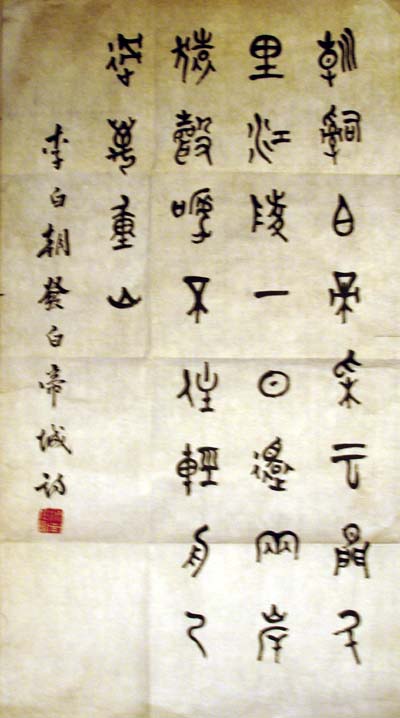 朝辭白帝采云間千
里江陵一日還兩岸
猿聲啼不住輕舟已
過萬重山
李白朝發白帝城詩